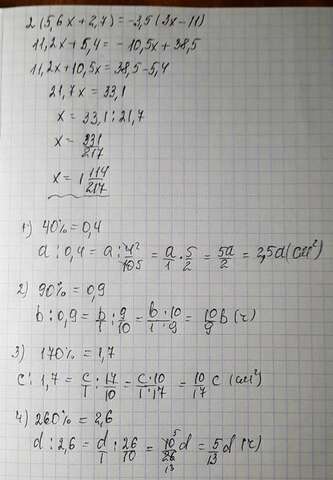 2(5,6x+2,7)=-3,5(3x-11)
11,2x+5,4=-10,5x+38,5
11,2x+10,5x=38,5-5,4
21,7x=33,1
x=33,1:21,7
x=331/217
x=1 114/217
1) 40%=0,4
a:0,4=a:4²/10 5=a/1·5/2=5a/2=2,5a(см²)
2) 90%=0,9
b:0,9=b/1:9/10=b·10/1·9=10/9b(г)
3) 170%=1,7
c:1,7=c/1:17/10=c·10/1·17=10/17c(см²)
4) 260%=2,6
d:2,6=d/1:26/10=10 5/26 13d=5/13d(г)